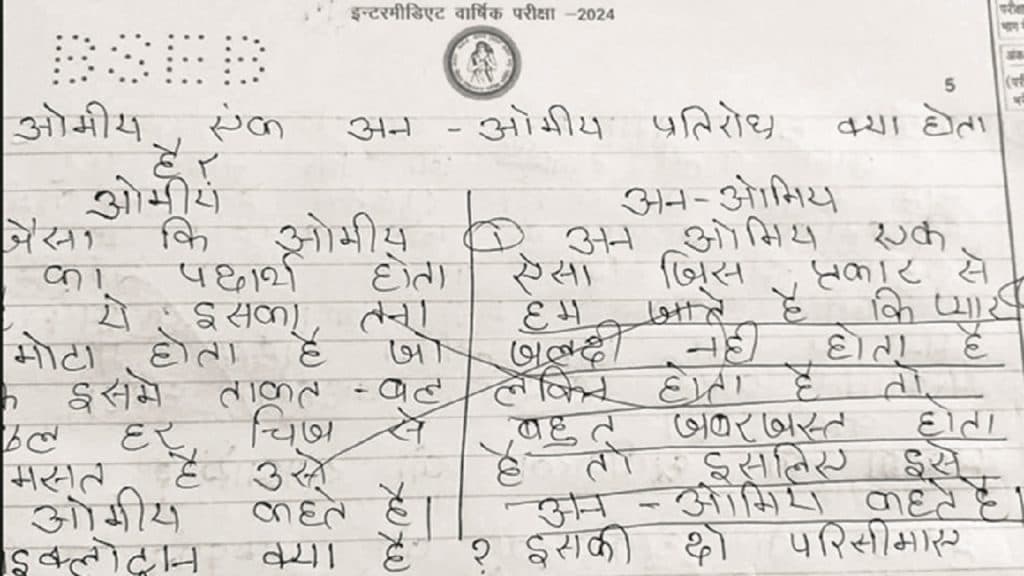 इन्टरमीडिएट वार्षिक परीक्षा –2024
BSEB
5
ओमीय एंक अन - ओमीय प्रतिरोध क्या होता
है र
ओमीयं
जैसा कि ओमीय
का पदार्थ होता
ये इसका तना
मोटा होता है जो
इसमे ताकत - वल
हर चिज से
मसत है उसे
ओमीय कहते है।
इक्लोट्रान क्या है ?
अन - ओमिय
① अन ओमिय एक
ऐसा जिस प्रकार से
हम जाते है कि प्यार
जलदी नही होता है
लेकिन होता है तो
बहुत जबरजस्त होता
है तो इसलिए इसे
अन - ओमिय कहते है।
इसकी दो परिसीमाए